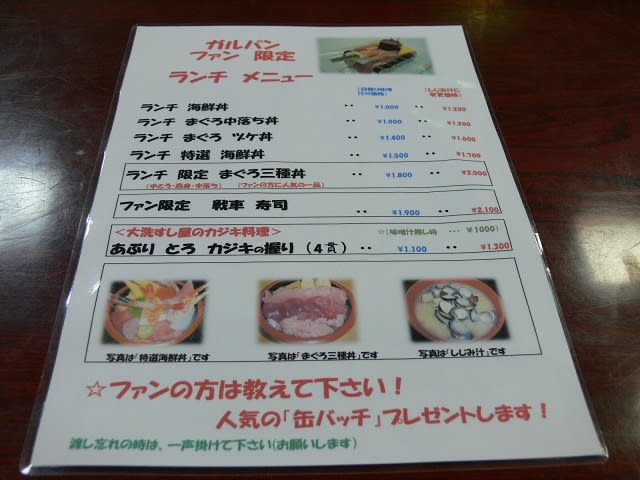 ガルパン
ファン 限定
ランチ メニュー
(日替り味噌汁の価格) (しじみ汁に変更価格)
ランチ 海鮮丼 ‥ ¥1.000 ‥ ¥1.200
ランチ まぐろ中落ち丼 ‥ ¥1.000 ‥ ¥1.200
ランチ まぐろ ヅケ丼 ‥ ¥1.400 ‥ ¥1.600
ランチ 特選 海鮮丼 ‥ ¥1.500 ‥ ¥1.700
ランチ 限定 まぐろ三種丼 ‥ ¥1.800 ‥ ¥2.000
(中とろ・赤身・中落ち) (ファンの方に人気の一品)
ファン限定 戦車 寿司 ‥ ¥1.900 ‥ ¥2.100
<大洗すし屋のカジキ料理> ☆(味噌汁無し時 … ¥1000)
あぶり とろ カジキの握り (4貫) ‥ ¥1.100 ‥ ¥1.300
写真は「特選海鮮丼」です 写真は「まぐろ三種丼」です 写真は「しじみ汁」です
☆ファンの方は教えて下さい!
人気の「缶バッチ」プレゼントします!
渡し忘れの時は、一声掛けて下さい(お願いします)